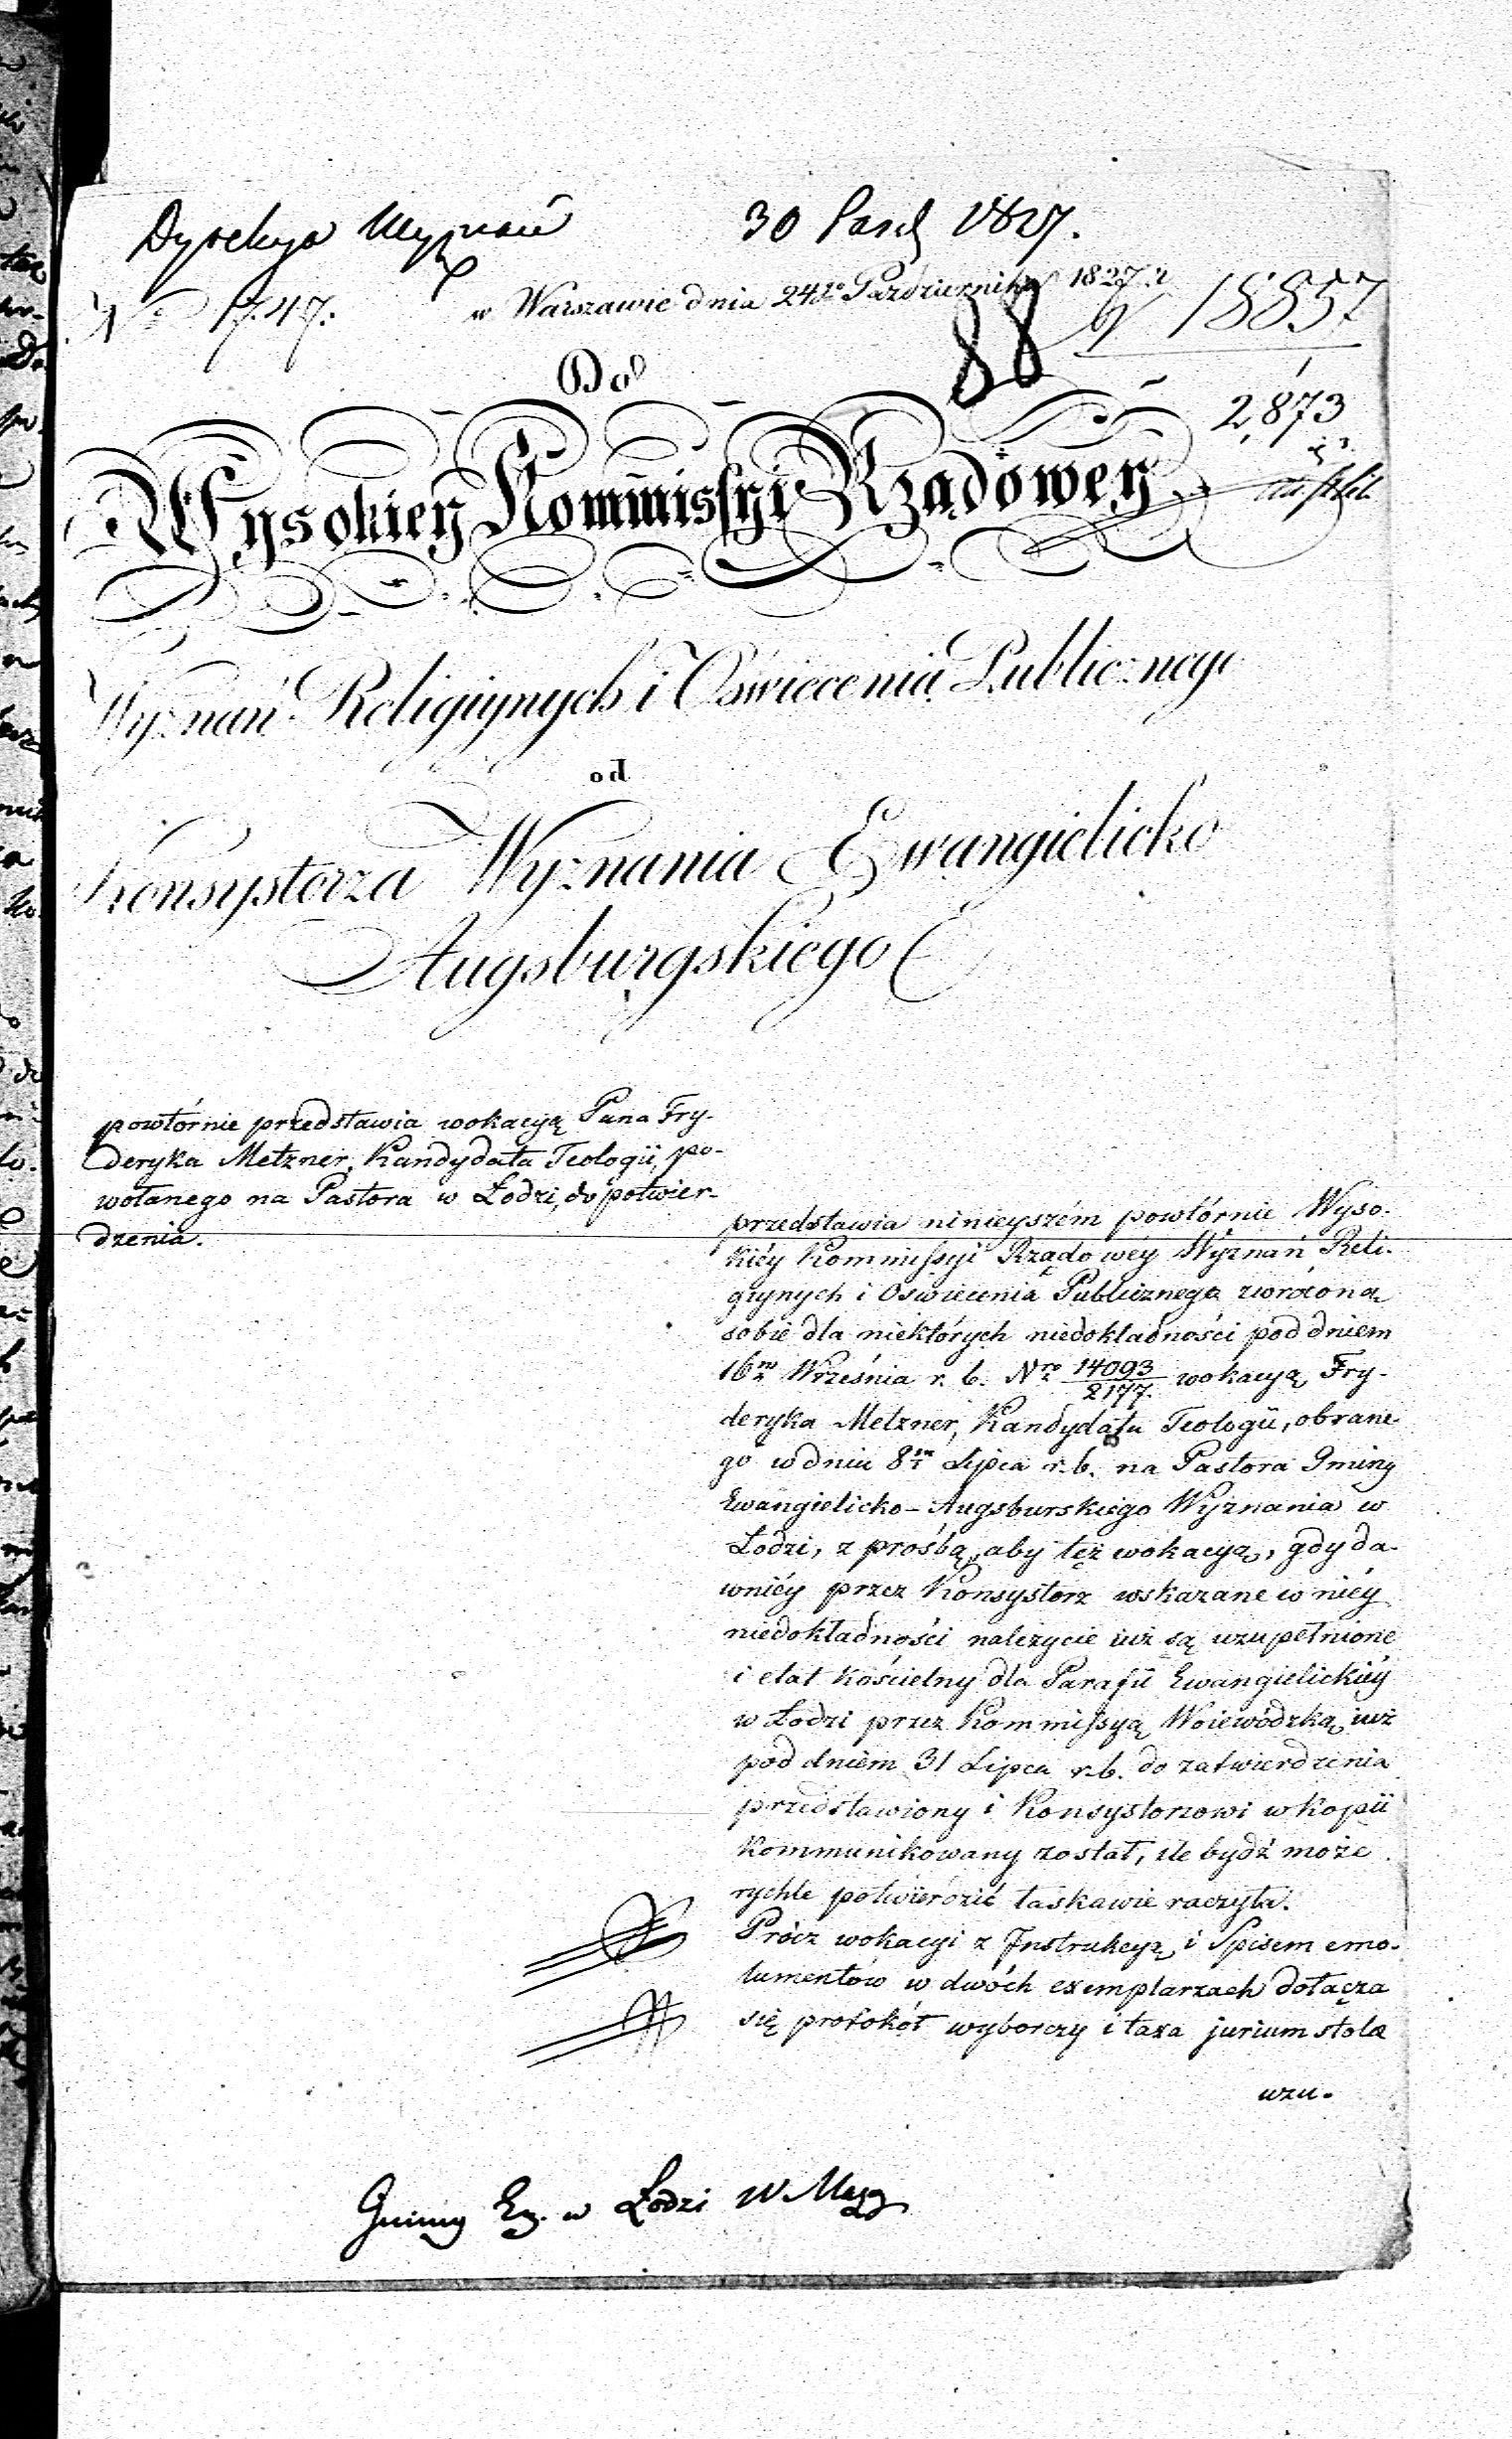 Dyrekcya Wyznań
30 Paźd 1827.
No 1747.
w Warszawie dnia 24go Pazdziernika 1827 r
88
18857
2,873
Do
Wysokiey Kommissyi Rządowey
Wyznań Religiynych i Oświecenia Publicznego
od
Konsystorza Wyznania Ewangielicko
Augsburgskiego
powtórnie przedstawia wokacyą Pana Fry-
deryka Metzner, Kandydata Teologii, po-
wołanego na Pastora w Łodzi, do potwier-
dzenia.
przedstawia ninieyszém powtórnie Wyso-
kiéy Kommissyi Rządowéy Wyznań Reli-
giynych i Oświecenia Publicznego zwróconą
sobie dla niektórych niedokładności pod dniem
16m Września r. b. Nro 14093/2177. wokacyą Fry-
deryka Metzner, Kandydata Teologii, obrane-
go w dniu 8m Lipca r. b. na Pastora Gminy
Ewangielicko-Augsburskiego Wyznania w
Łodzi, z prośbą, aby tęż wokacyą, gdy da-
wniéy przez Konsystorz wskazane w niéy
niedokładności należycie iuż są uzupełnione
i etat kościelny dla Parafii Ewangielickiéy
w Łodzi przez Kommissyą Woiewódzką iuż
pod dniem 31 Lipca r. b. do zatwierdzenia
przedstawiony i Konsystorzowi w kopii
kommunikowany został, ile bydź może
rychle potwierdzić łaskawie raczyła.
Prócz wokacyi z Instrukcyą i Spisem emo-
lumentów w dwóch exemplarzach dołącza
się protokół wyborczy i taxa jurium stolæ
uzu-
Gminy Ew. w Łodzi W Maz